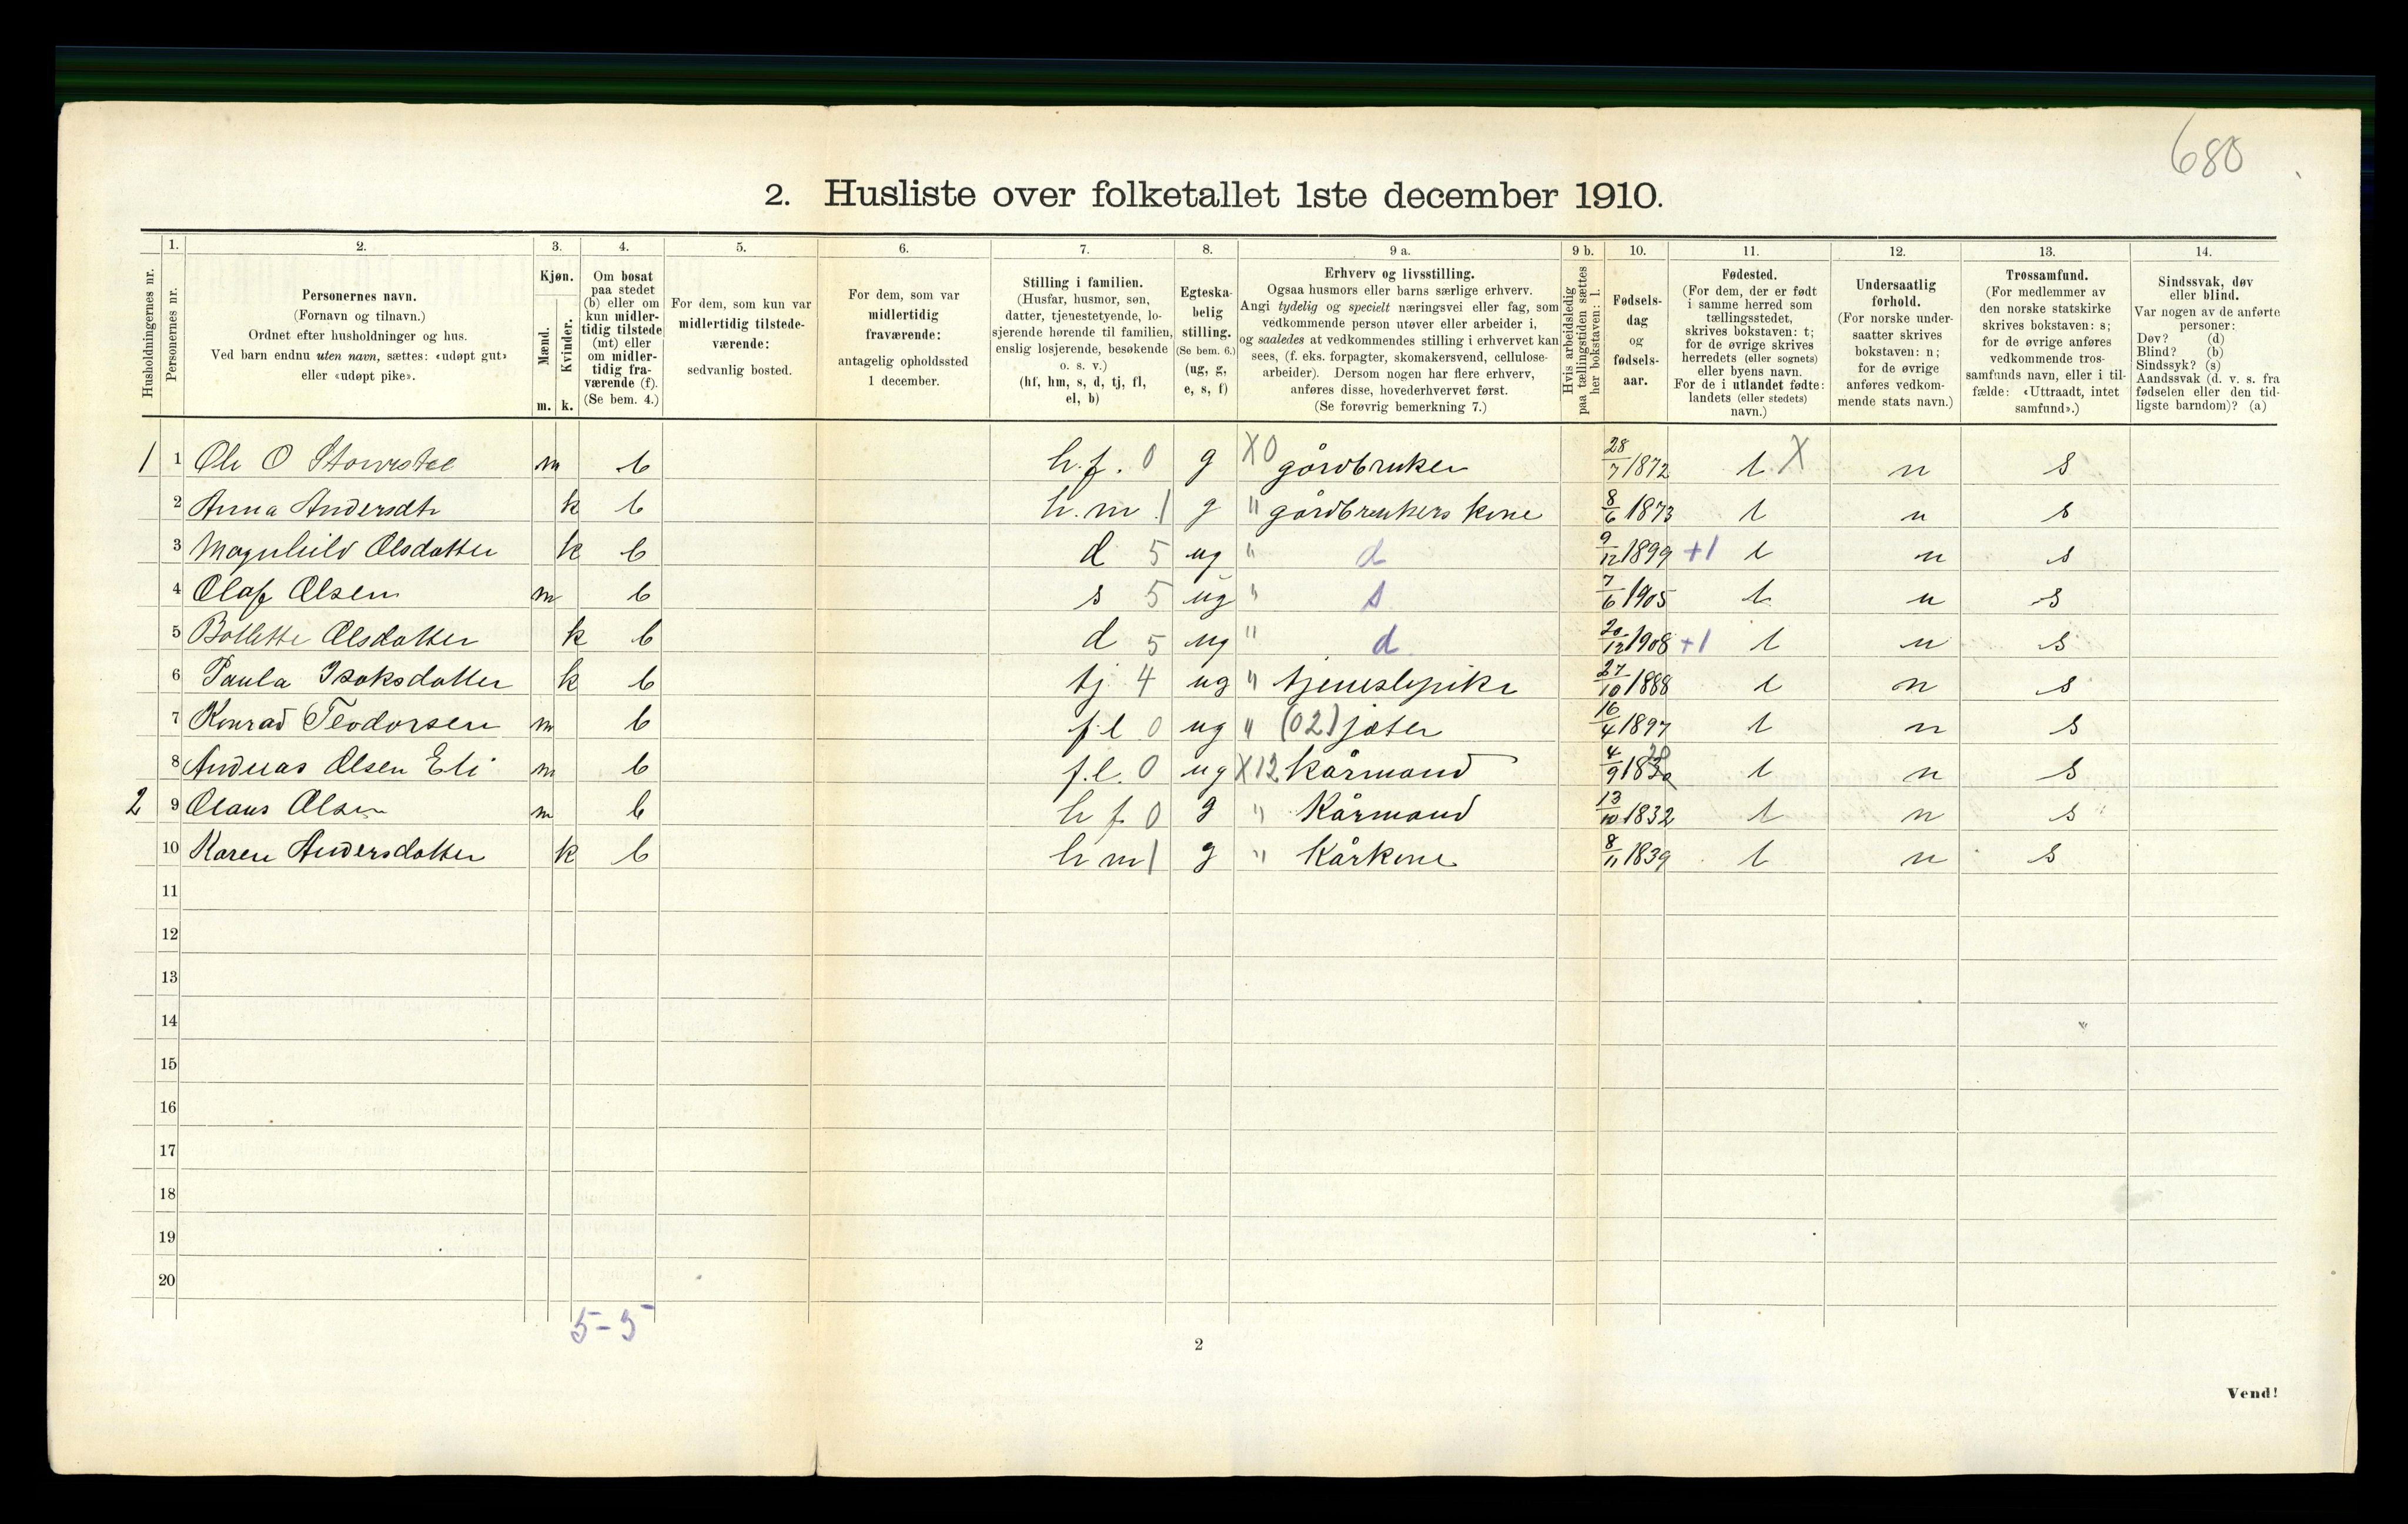 680
2. Husliste over folketallet 1ste december 1910.
Husholdningernes nr.
1.
Personernes nr.
2.
Personernes navn.
(Fornavn og tilnavn.)
Ordnet efter husholdninger og hus.
Ved barn endnu uten navn, sættes: «udøpt gut»
eller «udøpt pike».
3.
Kjøn.
Mænd.
Kvinder.
m. k.
4.
Om bosat
paa stedet
(b) eller om
kun midler-
tidig tilstede
(mt) eller
om midler-
tidig fra-
værende (f).
(Se bem. 4.)
5.
For dem, som kun var
midlertidig tilstede-
værende:
sedvanlig bosted.
6.
For dem, som var
midlertidig
fraværende:
antagelig opholdssted
1 december.
7.
Stilling i familien.
(Husfar, husmor, søn,
datter, tjenestetyende, lo-
sjerende hørende til familien,
enslig losjerende, besøkende
o. s. v.)
(hf, hm, s, d, tj, fl,
el, b)
8.
Egteska-
belig
stilling.
(Se bem. 6.)
(ug, g,
e, s, f)
9 a.
Erhverv og livsstilling.
Ogsaa husmors eller barns særlige erhverv.
Angi tydelig og specielt næringsvei eller fag, som
vedkommende person utøver eller arbeider i,
og saaledes at vedkommendes stilling i erhvervet kan
sees, (f. eks. forpagter, skomakersvend, cellulose-
arbeider). Dersom nogen har flere erhverv,
anføres disse, hovederhvervet først.
(Se forøvrig bemerkning 7.)
9 b.
Hvis arbeidsledig
paa tællingstiden sættes
her bokstaven: l.
10.
Fødsels-
dag
og
fødsels-
aar.
11.
Fødested.
(For dem, der er født
i samme herred som
tællingsstedet,
skrives bokstaven: t;
for de øvrige skrives
herredets (eller sognets)
eller byens navn.
For de i utlandet fødte:
landets (eller stedets)
navn.)
12.
Undersaatlig
forhold.
(For norske under-
saatter skrives
bokstaven: n;
for de øvrige
anføres vedkom-
mende stats navn.)
13.
Trossamfund.
(For medlemmer av
den norske statskirke
skrives bokstaven: s;
for de øvrige anføres
vedkommende tros-
samfunds navn, eller i til-
fælde: «Uttraadt, intet
samfund».)
14.
Sindssvak, døv
eller blind.
Var nogen av de anførte
personer:
Døv? (d)
Blind? (b)
Sindssyk? (s)
Aandssvak (d. v. s. fra
fødselen eller den tid-
ligste barndom)? (a)
1 1 Ole O m b h.f. 0 g X0 gårdbruker 28/7 1872 t X n s
2 Anna Andersdtr k b h.m. 1 g " gårdbrukers kone 8/6 1873 t n s
3 Magnhild Olsdatter k b d 5 ug " d 9/12 1899 +1 t n s
4 Olaf Olsen m b s 5 ug " s 7/6 1905 t n s
5 Bollette Olsdatter k b d 5 ug " d 20/12 1908 +1 t n s
6 Paula Isaksdatter k b tj 4 ug " tjenestepike 27/10 1888 t n s
7 Konrad Teodorsen m b f.l 0 ug " (02) jæter 16/4 1897 t n s
8 Andreas Olsen Eli m b f.l. 0 ug X12 Kårmand 4/9 18 t n s
2 9 Olaus Olsen m b h f 0 g " Kårmand 13/10 1832 t n s
10 Karen Andersdatter k b h m 1 g " Kårkone 8/11 1839 t n s
11
12
13
14
15
16
17
18
19
20
5-5
2
Vend!